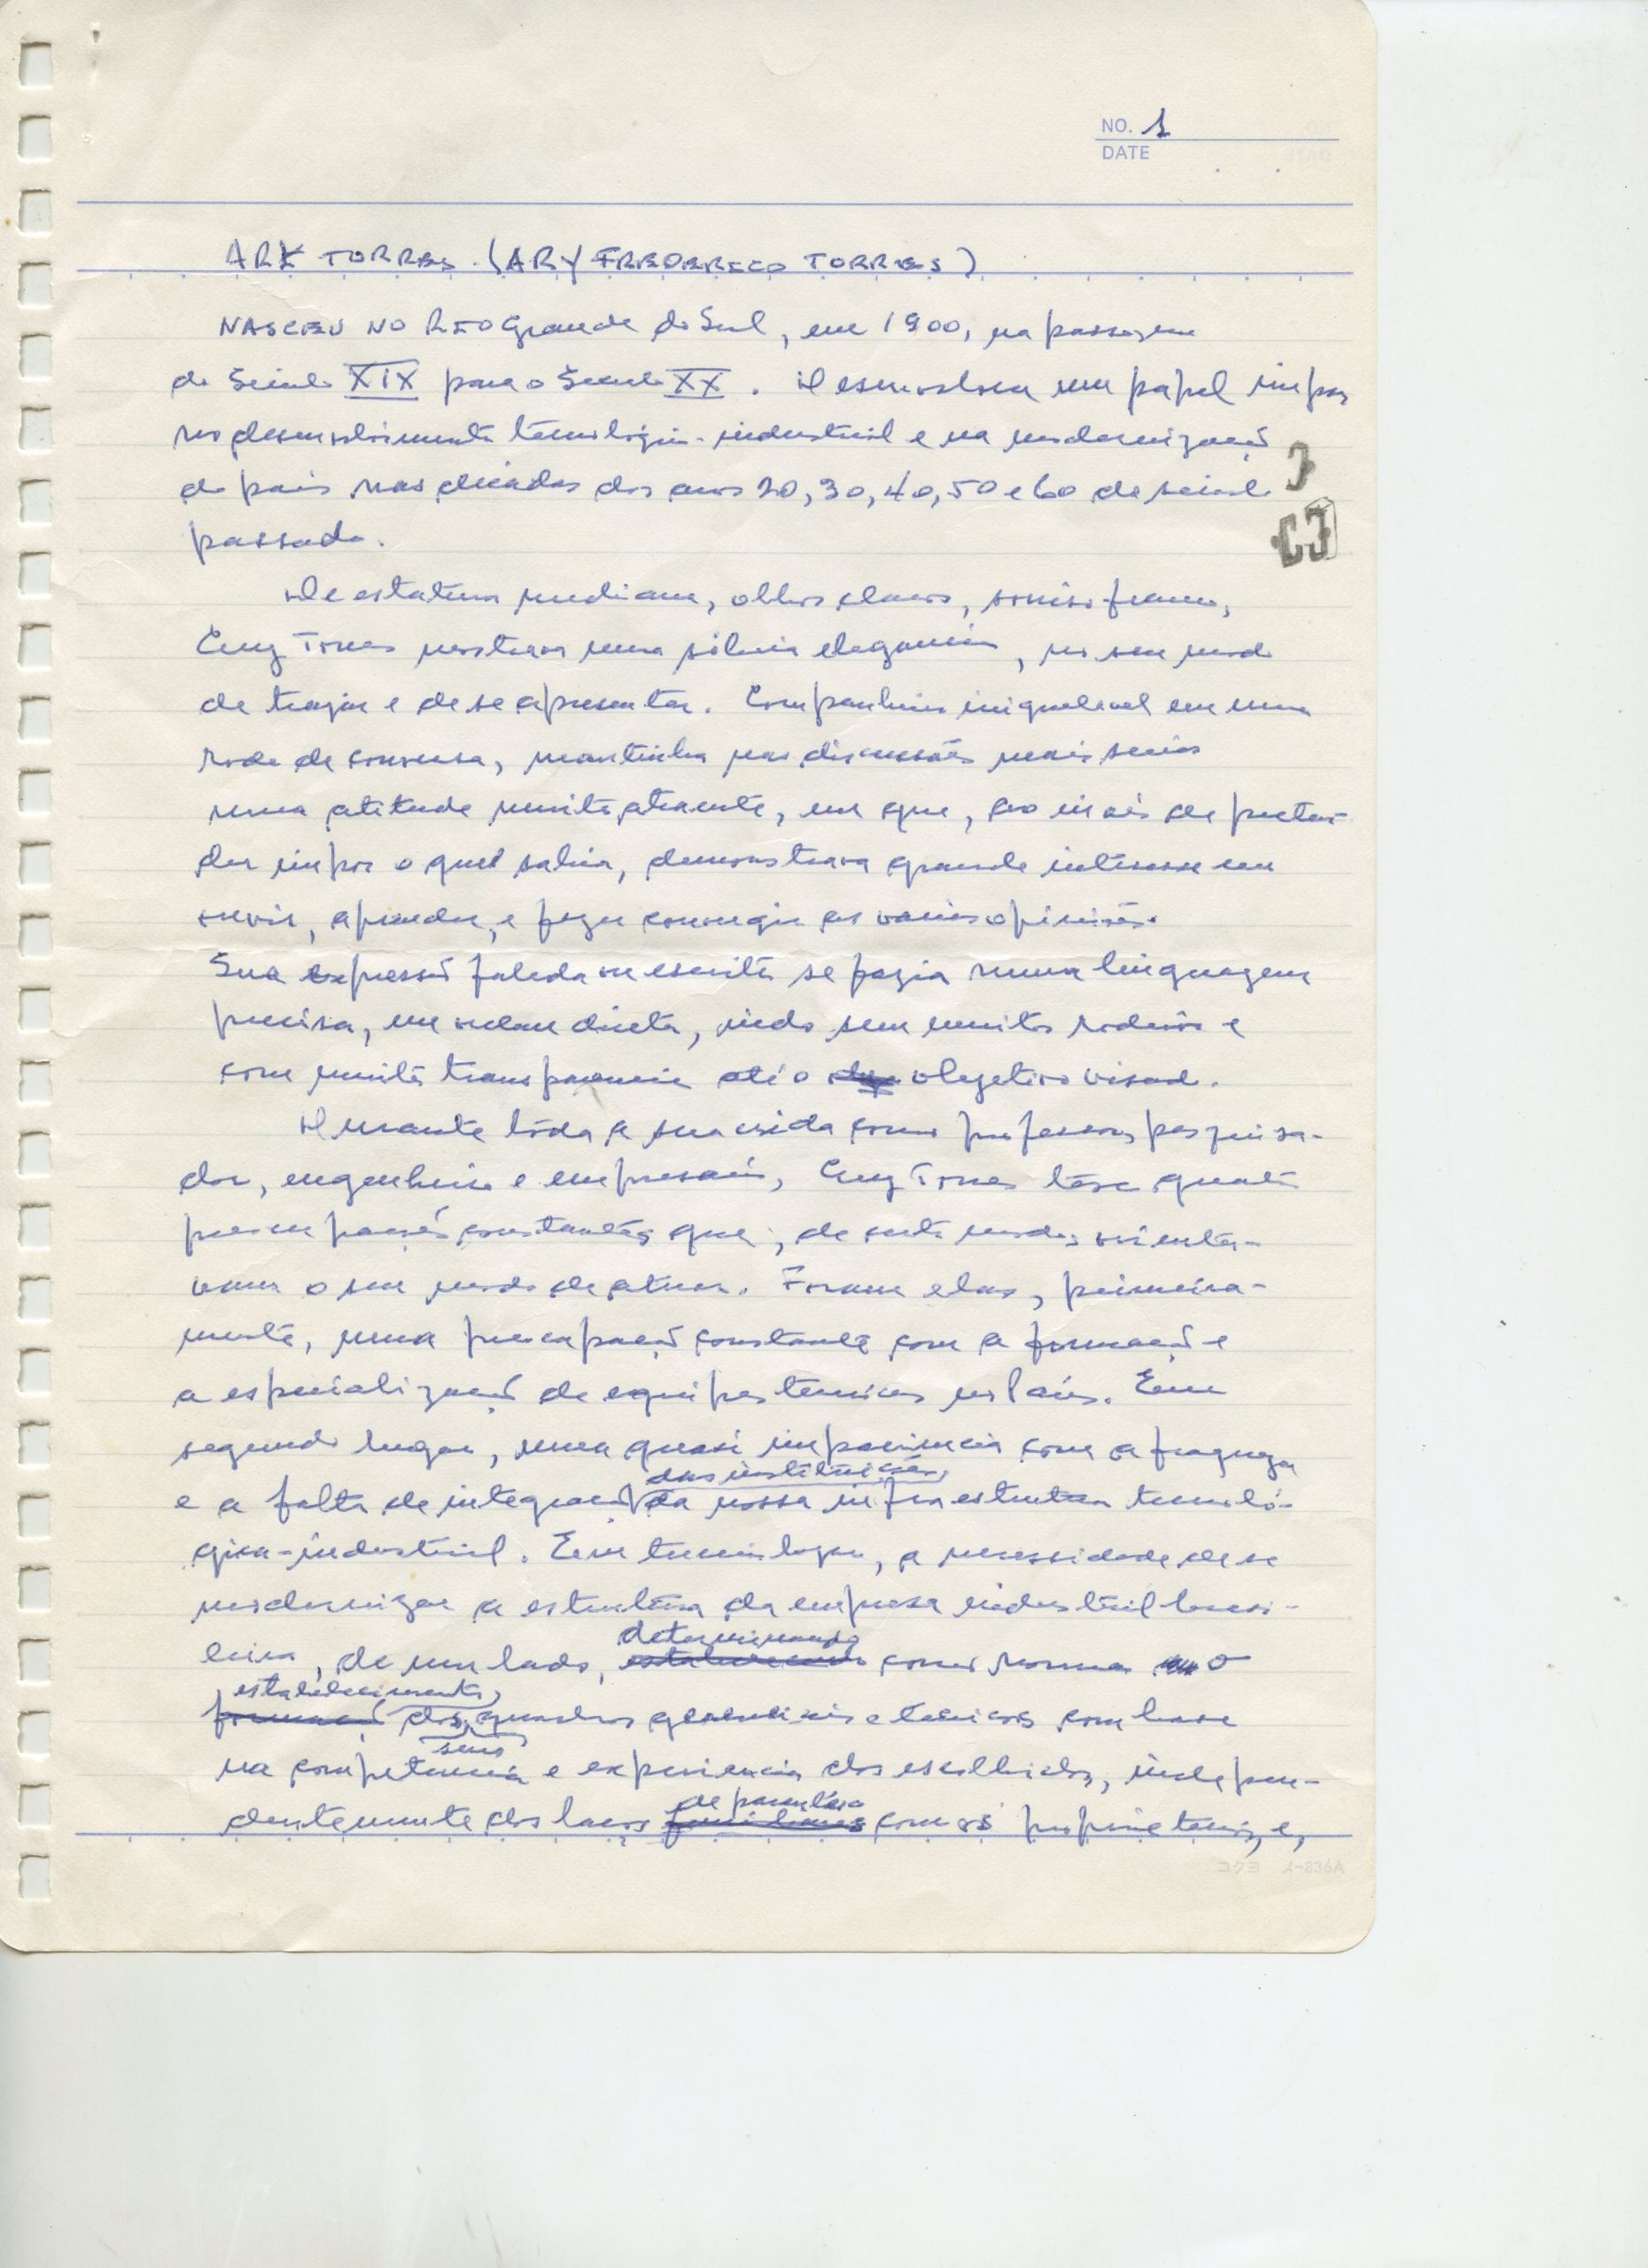 NO. 1
DATE
ARY TORRES (ARY FREDERICO TORRES)
NASCEU NO RIO Grande do Sul, em 1900, na passagem
do Século XIX para o Século XX. Desenvolveu um papel impar
no desenvolvimento tecnológico-industrial e na modernização
do pais nas décadas dos anos 20, 30, 40, 50 e 60 do século
passado.
De estatura mediana, olhos claros, sorriso franco,
Ary Torres mostrava uma sóbria elegancia, no seu modo
de trajar e de se apresentar. Companheiro inigualavel em uma
roda de conversa, mantinha nas discussões mais serias
uma atitude muito atraente, em que, ao invés de preten-
der impor o que sabia, demonstrava grande interesse em
ouvir, aprender, e fazer convergir as varias opiniões.
Sua expressão falada ou escrita se fazia numa linguagem
precisa, em ordem direta, indo sem muitos rodeios e
com muita transparencia até o objetivo visado.
Durante tôda a sua vida como professor, pesquisa-
dor, engenheiro e empresario, Ary Torres teve quatro
preocupações constantes que, de certo modo, orienta-
vam o seu modo de atuar. Foram elas, primeira-
mente, uma preocupação constante com a formação e
a especialização de equipes tecnicas no Pais. Em
segundo lugar, uma quasi impaciencia com a fraqueza
das instituições,
e a falta de integração da nossa infraestrutura tecnoló-
gica-industrial. Em terceiro lugar, a necessidade de se
modernizar a estrutura da empresa industrial brasi-
determinando
leira, de um lado, estabelecendo como norma o
estabelecimento,
formação dos quadros gerenciais e tecnicos com base
seus
na competencia e experiencia dos escolhidos, indepen-
de parentesco
dentemente dos laços familiares com os proprietarios, e,
コクヨ ノ-836A